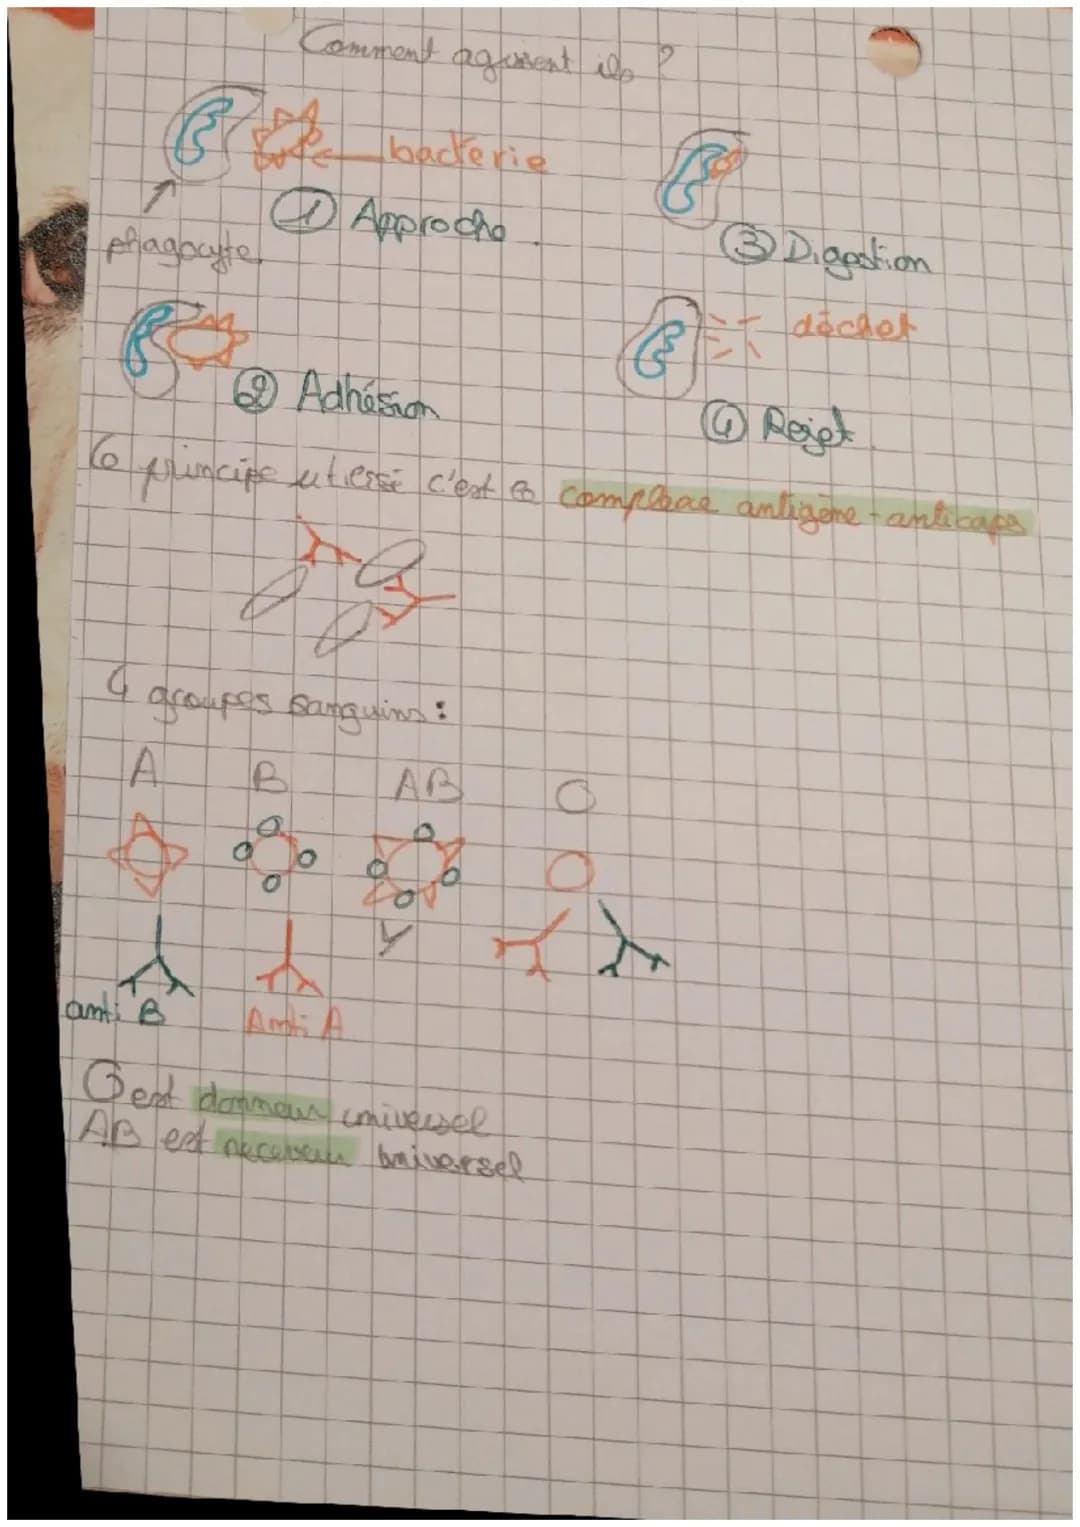 Comment agissent ils ?
bacterie
phagocyte
① Approche
② Adhésion
③ Digestion
déchet
④ Rejet
le principe utilisé c'est le complexe antigène-anticorps
4 groupes sanguins :
A B AB O
anti B
Anti A
O est donneur universel
AB est receveur universel